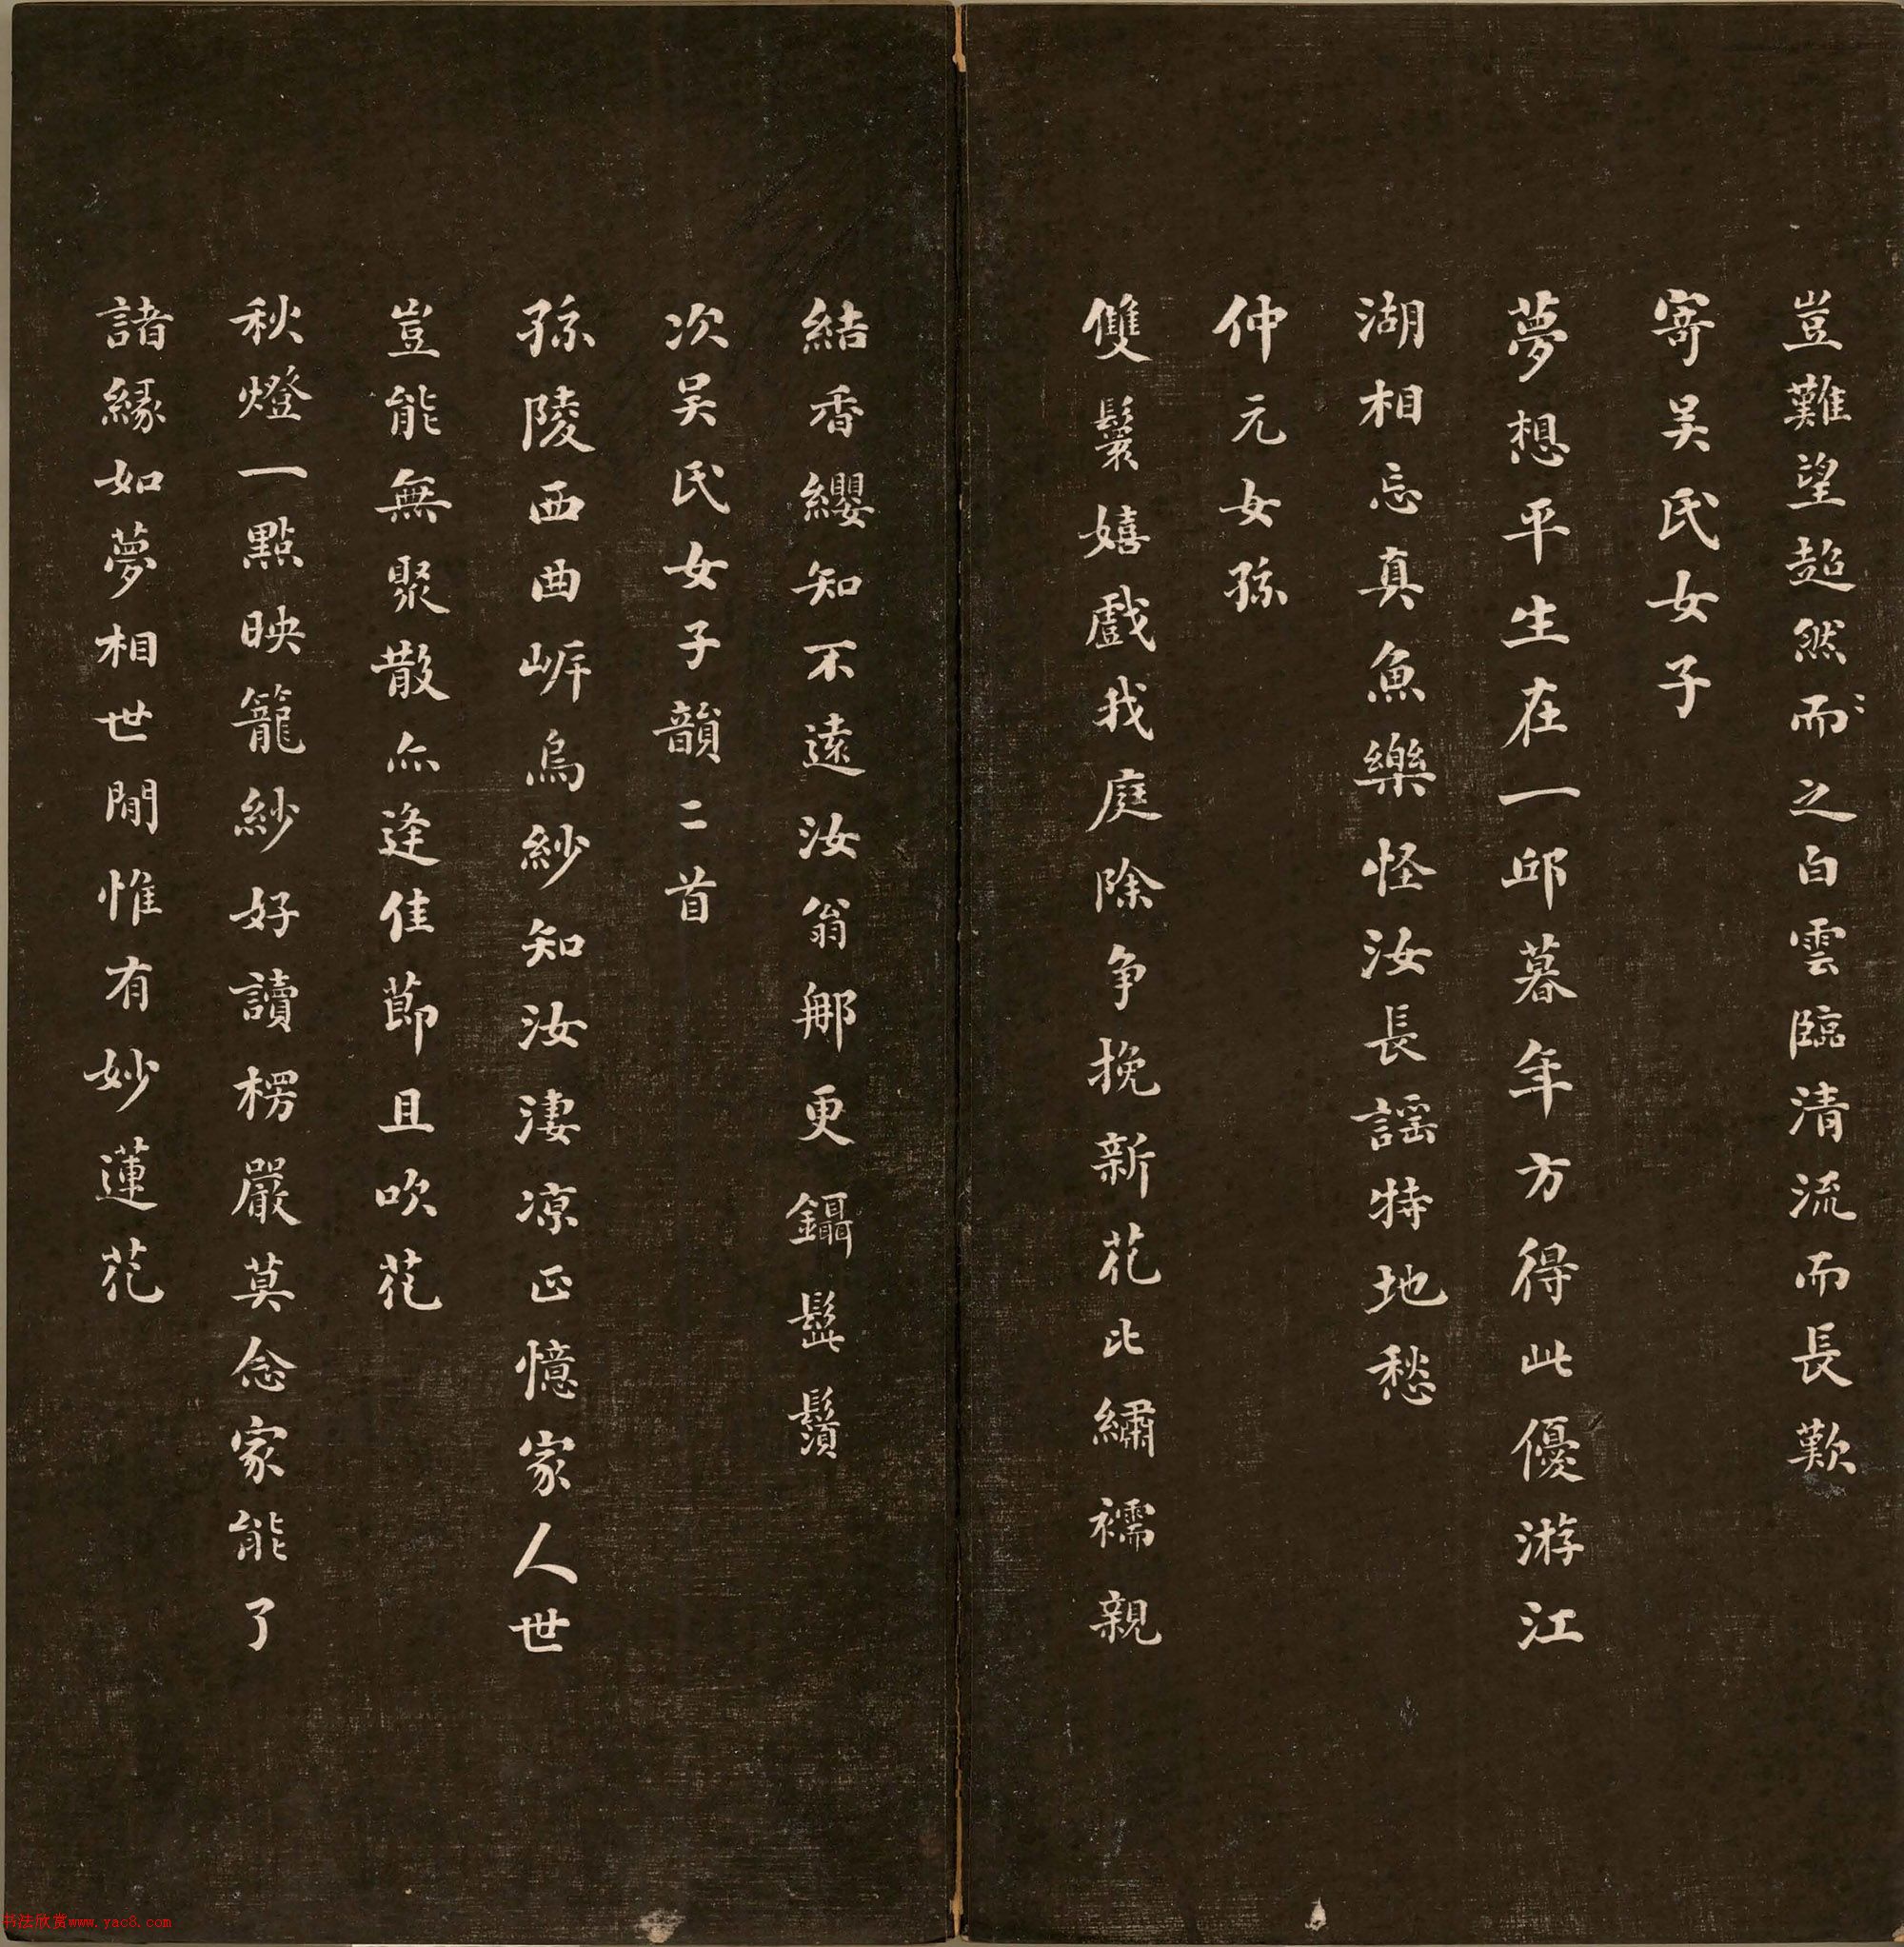 豈難望超然而之白雲臨清流而長歎
寄吴氏女子
夢想平生在一邱暮年方得此優游江
湖相忘真魚樂怪汝長謡特地愁
仲元女孫
雙鬟嬉戲我庭除争挽新花比繡襦親
結香纓知不遠汝翁那更鑷髭鬚
次吴氏女子韻二首
孫陵西曲岸烏紗知汝淒凉正憶家人世
豈能無聚散亦逢佳節且吹花
秋燈一點映籠紗好讀楞嚴莫念家能了
諸緣如夢相世間惟有妙蓮花
书法欣赏www.yac8.com